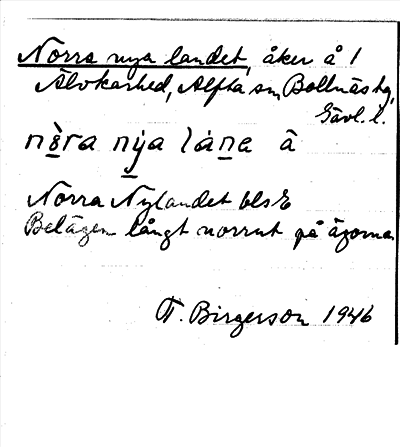 Norra nya landet, åker å 1
Älvkarhed, Alfta sn, Bollnäs tg,
Gävl. l.
nɔ̀ra nýa láne å
Norra Nylandet blskE
Belägen långt norrut på ägorna
T. Birgerson 1946